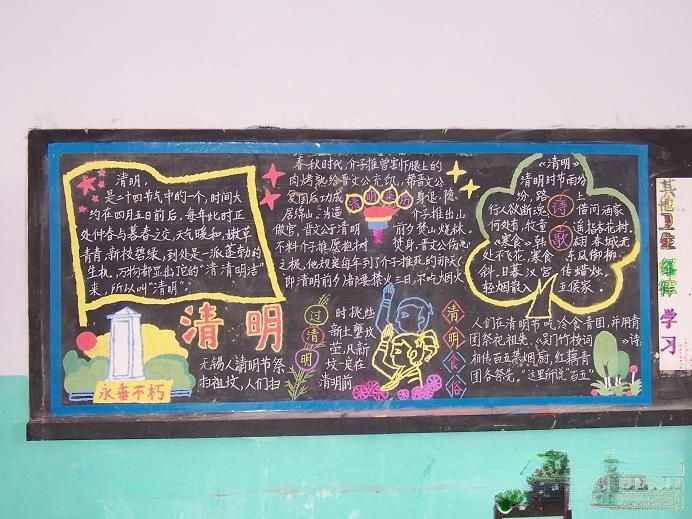 清明,
是二十四节气中的一个,时间大
约在四月五日前后,每年此时正
处仲春与暮春之交,天气暖和,嫩草
青青,新枝碧绿,到处是一派蓬勃的
生机,万物都显出它的“清清明洁”
来,所以叫“清明”。
清明
永垂不朽
春秋时代,介子推曾割下腿上的
肉烤熟给晋文公充饥,帮晋文公
复国后功成身退,隐
居绵山,清道
介子推出山
做官,晋文公于清明前夕焚山烧林,
不料介子推愿抱树焚身,晋文公伤心
之极,他规定每年到了介子推死的那天(
即清明前夕)诸[]禁火三日,不吃烟火
清明来历
过清明
无锡人清明节祭
扫祖坟,人们扫
时挑些
新土壅坟
莹,凡新
坟一定在
清明前
清明食俗
《清明》
清明时节雨纷
纷,路上
行人欲断魂,借问酒家
何处有,牧童遥指杏花村
《寒食》韩翃春城无
处不飞花,寒食东风御柳
斜,日暮汉宫传蜡烛,
轻烟散入五侯家
诗歌
人们在清明节吃冷食青团,并用青
团祭祀祖先,《吴门竹枝词》诗,
相传百五禁烟厨,红藕青
团各祭先,“这里所说“百五”
其他卫生
学习